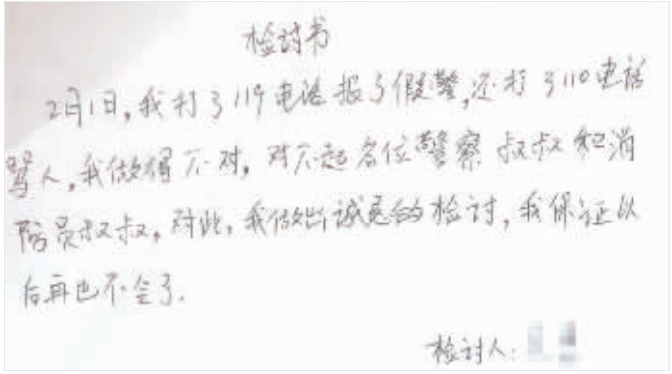 检讨书
2月1日,我打了119电话报了假警,还打了110电话
骂人,我做得不对,对不起各位警察叔叔和消
防员叔叔。对此,我做出诚恳的检讨,我保证以
后再也不会了.
检讨人: